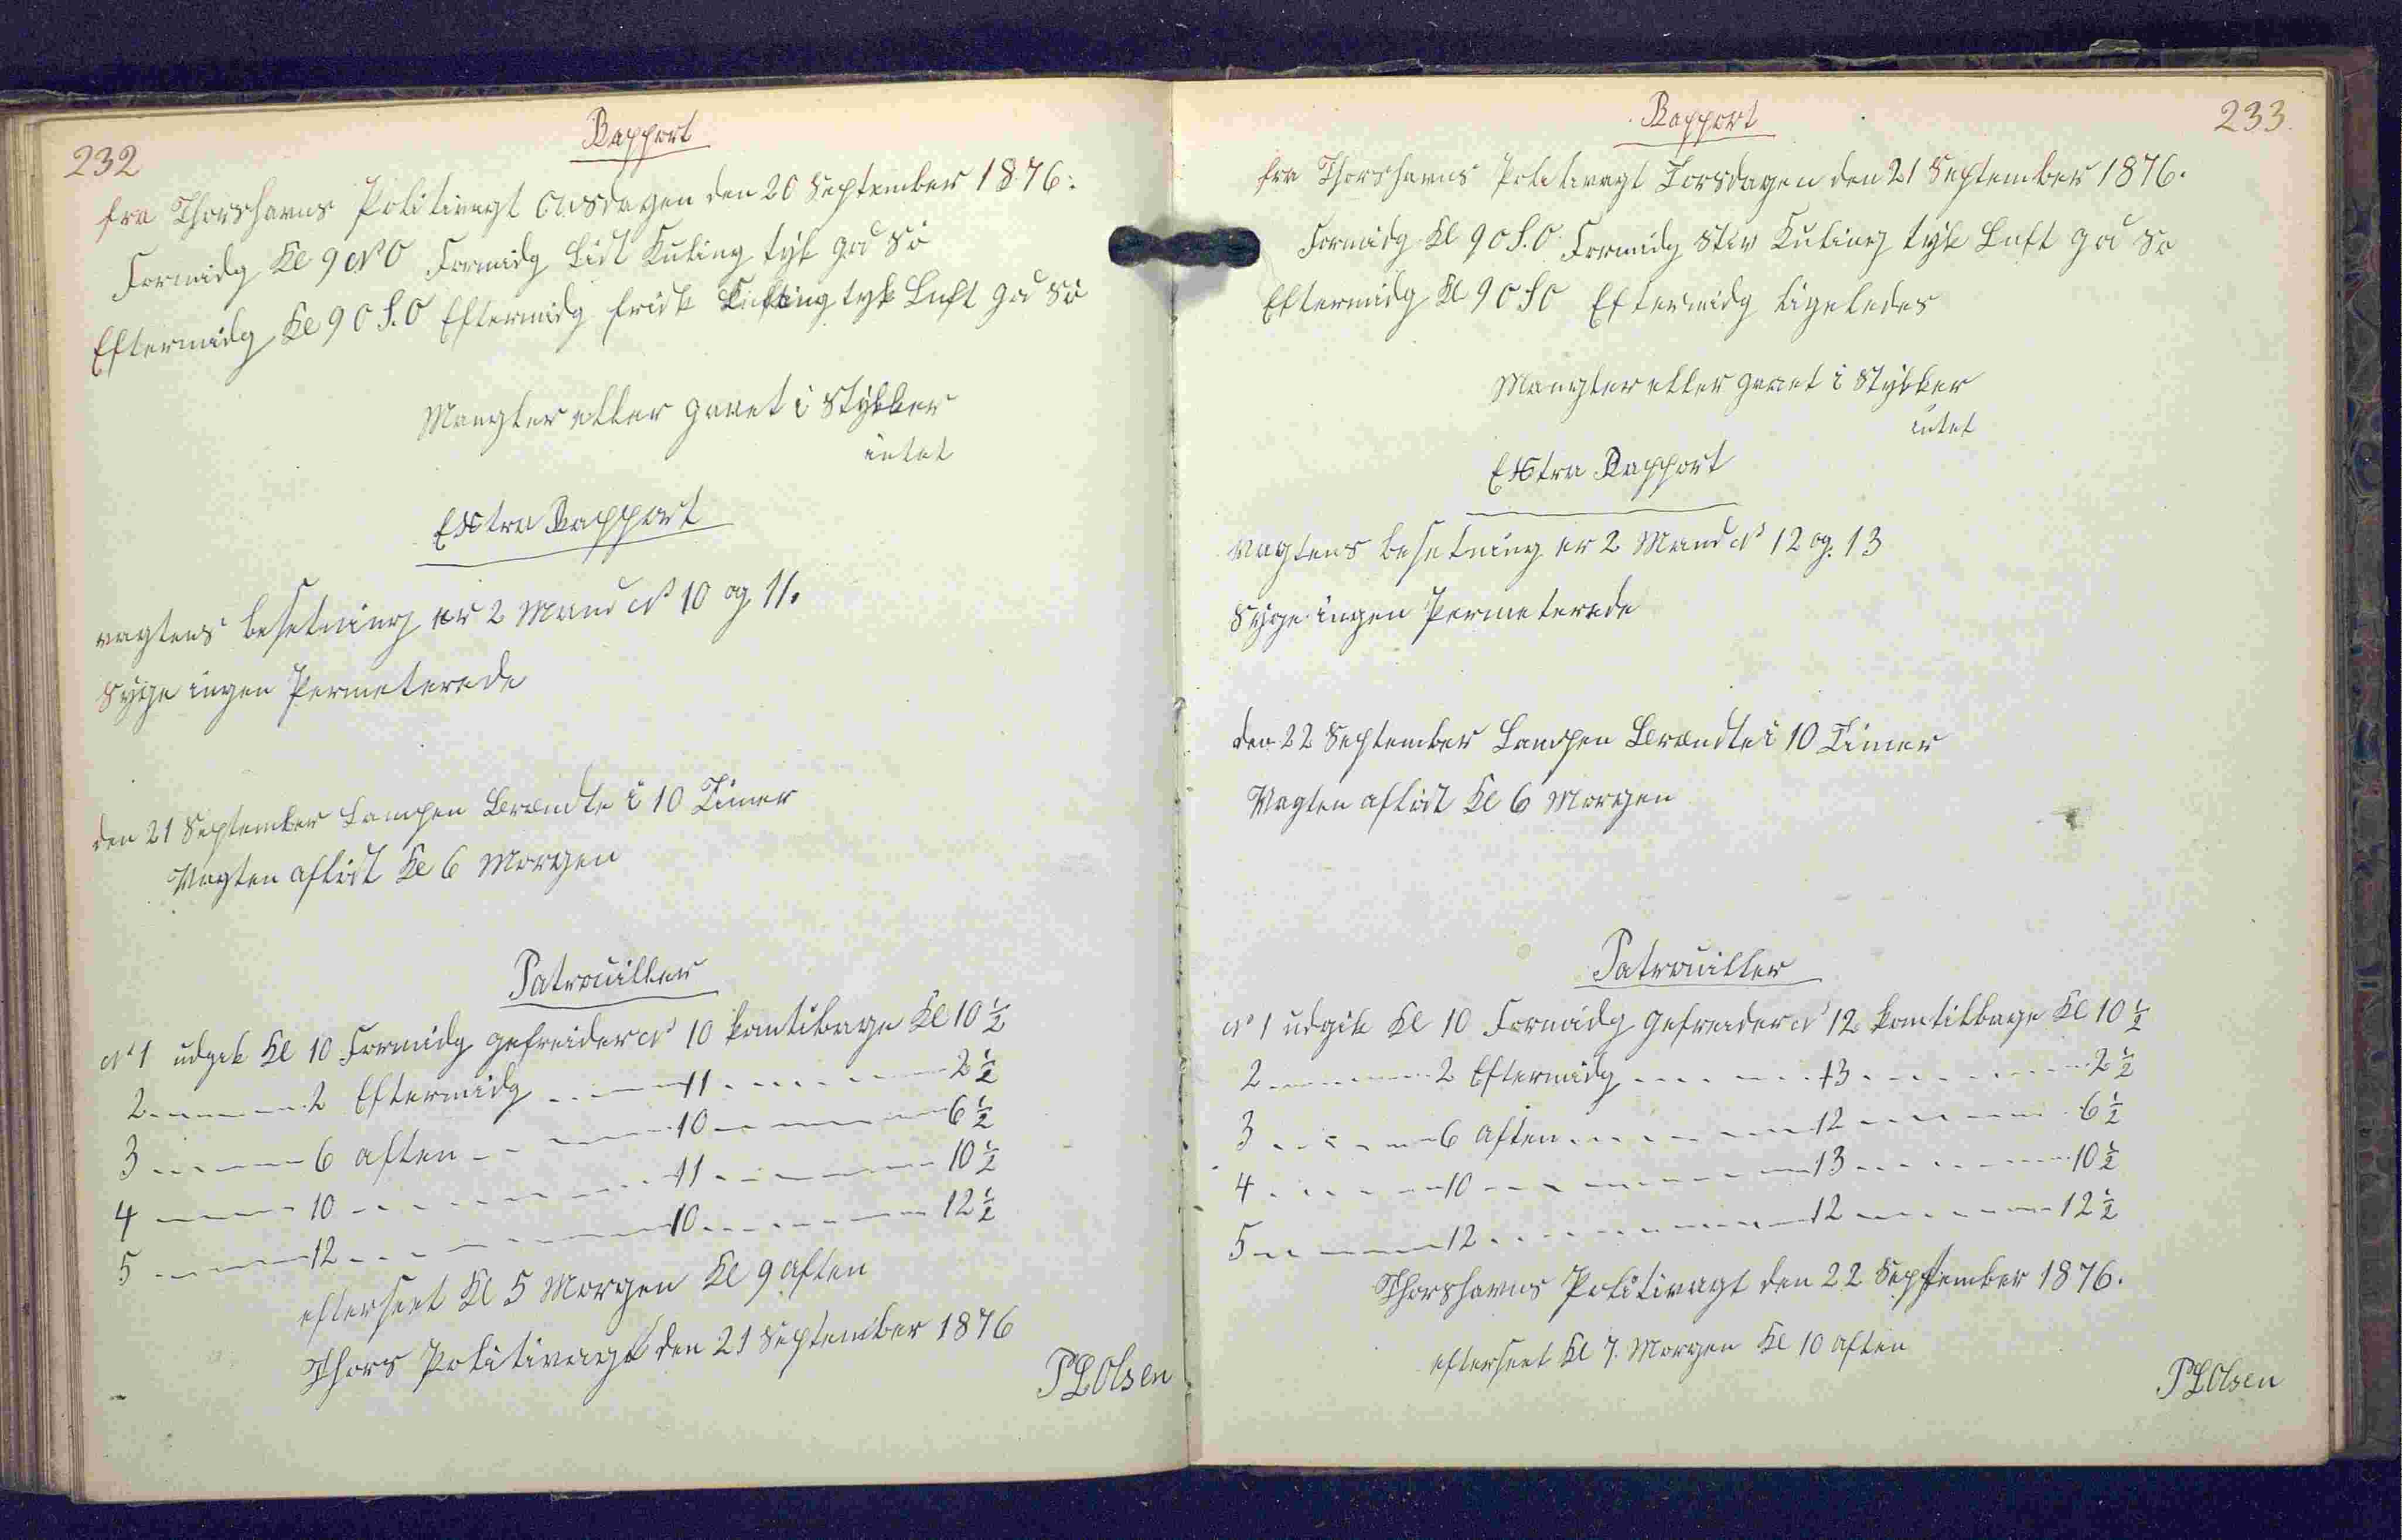 232
Rapport
fra Thorshavns Politivagt Onsdagen den 20 September 1876.
Formidg Kl 9 N O Formidg Lidt Kuling tyk god Sö
Eftermidg Kl 9 O S.O Eftermidg frisk Kuling tyk Luft god Sö
Mangler eller gaaet i Stykker
intet
Extra Rapport
vagtens besetning er 2 Mand No 10 og 11.
Syge ingen Permeterede
den 21 September Lampen Brændte i 10 Timer
Vagten aflöst Kl 6 Morgen
Patrouiller
No 1 udgik Kl 10 Formidg gefreider No 10 komtilbage Kl 10 ½
2 2 Eftermidg 11 2 ½
3 6 aften 10 6 ½
4 10 11 10 ½
5 12 10 12 ½
efterseet Kl 5 Morgen Kl 9 aften
Thors Politivagt den 21 September 1876
P L Olsen
233.
Rapport
fra Thorshavns Politivagt Torsdagen den 21 September 1876.
Formidg Kl 9 O S.O. Formidg Stiv Kuling tyk Luft god Sö
Eftermidg Kl 9 O S O Eftermidg ligeledes
Mangler eller gaaet i Stykker
intet
Extra Rapport
vagtens besetning er 2 Mand No 12 og 13
Syge ingen Permeterede
den 22 September Lampen Brændte i 10 Timer
Vagten aflöst Kl 6 Morgen
Patrouiller
No 1 udgik Kl 10 Formidg Gefreider No 12 komtilbage Kl 10 ½
2 2 Eftermidg 13 2 ½
3 6 Aften 12 6 ½
4 10 13 10 ½
5 12 12 12 ½
Thorshavns Politivagt den 22 September 1876.
efterseet Kl 7. Morgen Kl 10 aften
P L Olsen